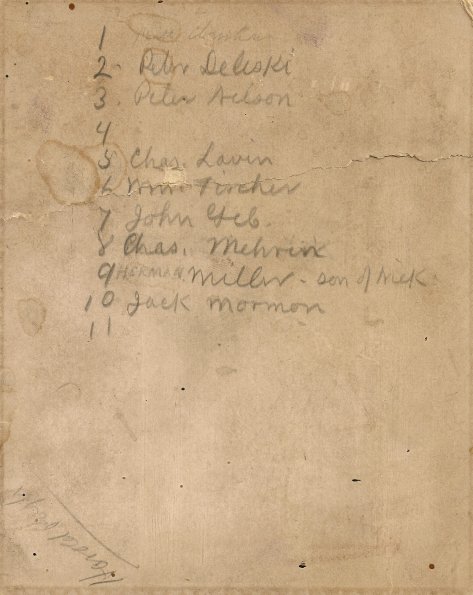 1
2. Peter Deleski
3. Peter Nelson
4
5 Chas. Lavin
6 Wm. Fircher
7 John Geb.
8 Chas. Mehrin
9 HERMAN Miller - son of Mek
10 Jack Mormon
11